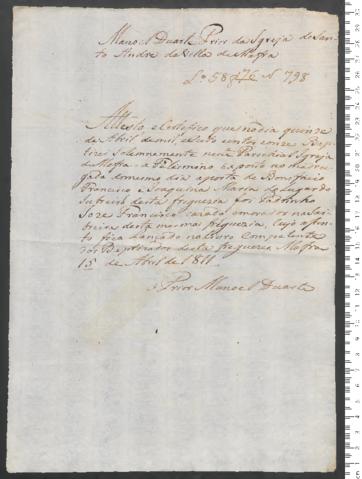 Manoel Duarte Prior da Igreja de San-
to Andre da Villa de Mafra
Lº 58 Nº 798
Attesto e Certefico que no dia quinze
de Abril de mil, e oito centos e onze Bap-
tizei Solemnemente nesta Parochial Igreja
de Mafra a exposto na ma-
gada do mesmo dia a porta de Bonifacio
Francisco e Joaquina Maria do Lugar do
desta freguezia foi Padrinho
Joze Francisco cazado morador na
desta mesma freguezia, cujo assen-
to fica lançado no livro competente
dos Baptizados desta freguezia Mafra
15 de Abril de 1811
o Prior Manoel Duarte